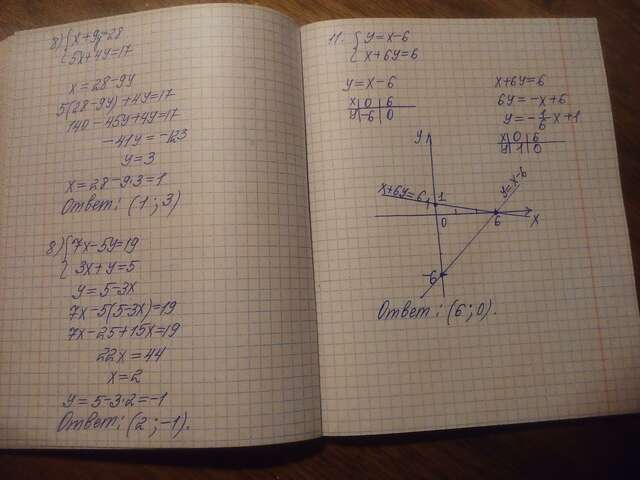 8) { x+9y=28
5x+4y=17
x=28-9y
5(28-9y)+4y=17
140-45y+4y=17
-41y=-123
y=3
x=28-9·3=1
Ответ: (1;3)
8) { 7x-5y=19
3x+y=5
y=5-3x
7x-5(5-3x)=19
7x-25+15x=19
22x=44
x=2
y=5-3·2=-1
Ответ: (2;-1).
11. { y=x-6
x+6y=6
y=x-6
x 0 6
y -6 0
x+6y=6
6y=-x+6
y=-1/6x+1
x 0 6
y 1 0
y
y=x-6
x+6y=6
1
1
0
6
x
-6
Ответ: (6;0).